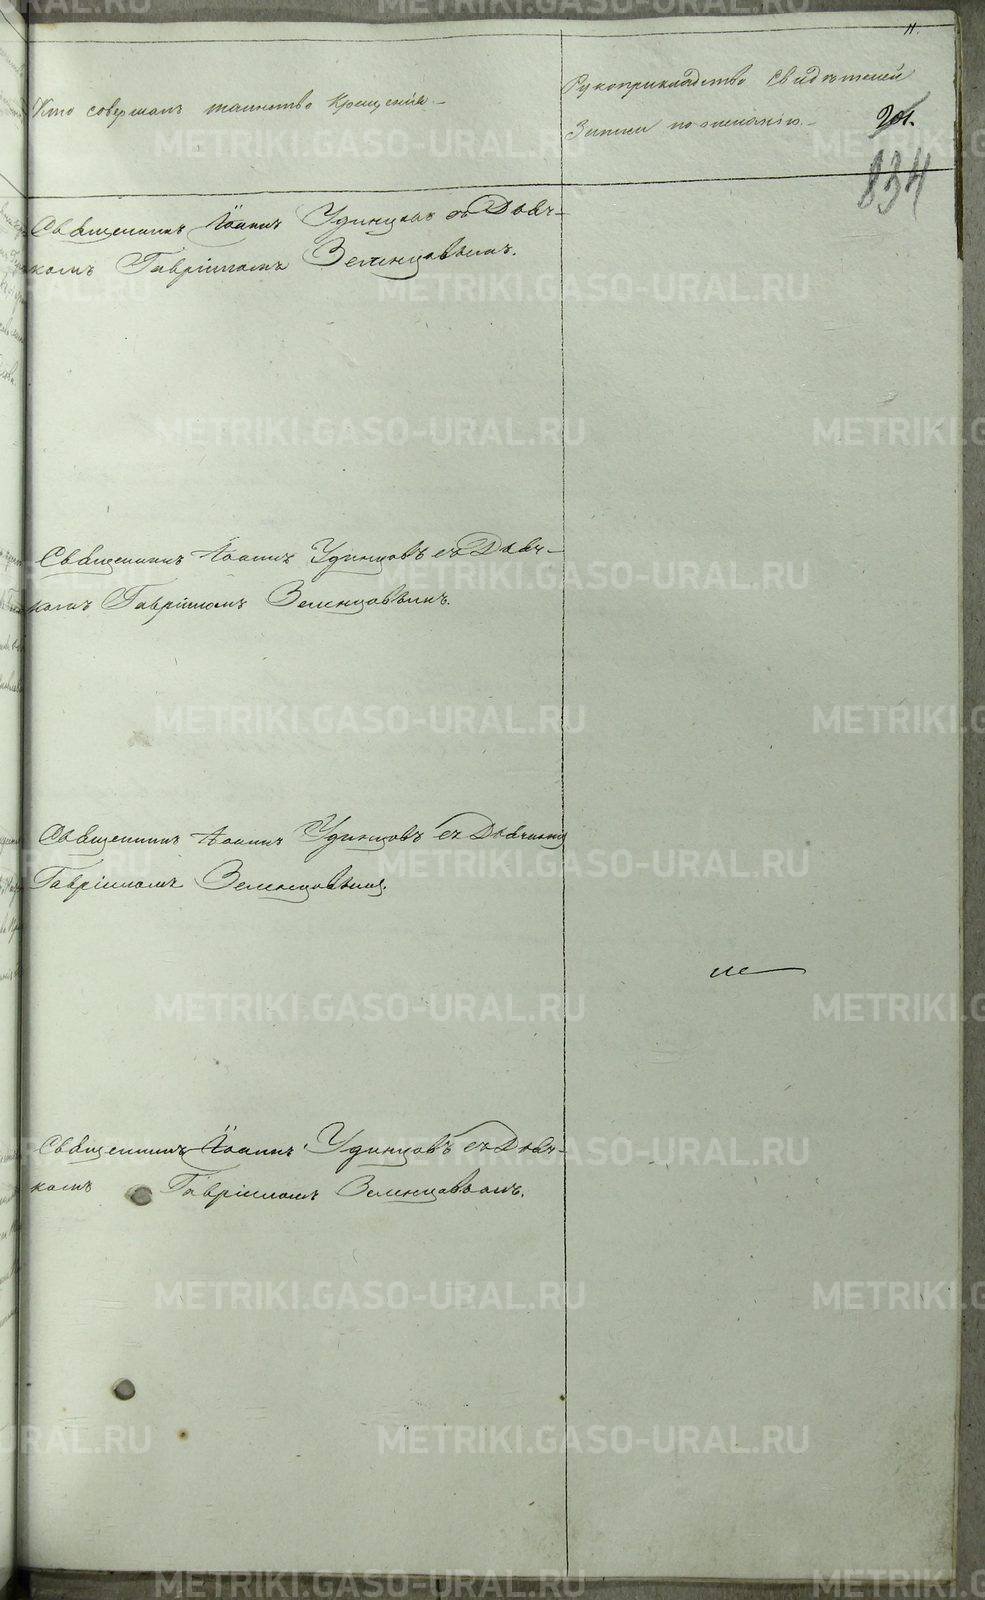 11.
Кто совершалъ таинство Крещенія
Рукоприкладство Свидѣтелей
Записи по желанію
201.
834
Священникъ Іоаннъ Удинцовъ съ Дьяч-
комъ Гавріиломъ Зеленцовымъ.
Священникъ Іоаннъ Удинцовъ съ Дьяч-
комъ Гавріиломъ Зеленцовымъ.
Священникъ Іоаннъ Удинцовъ съ Дьячкомъ
Гавріиломъ Зеленцовымъ.
Священникъ Іоаннъ Удинцовъ съ Дьяч-
комъ Гавріиломъ Зеленцовымъ.
METRIKI.GASO-URAL.RU